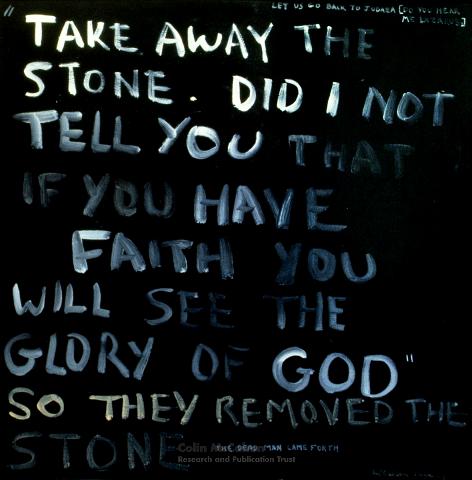 LET US GO BACK TO JUDAEA [DO YOU HEAR
ME LAZARUS]
"TAKE AWAY THE
STONE. DID I NOT
TELL YOU THAT
IF YOU HAVE
FAITH YOU
WILL SEE THE
GLORY OF GOD"
SO THEY REMOVED THE
STONE
THE DEAD MAN CAME FORTH
Colin McCahon
Research and Publication Trust